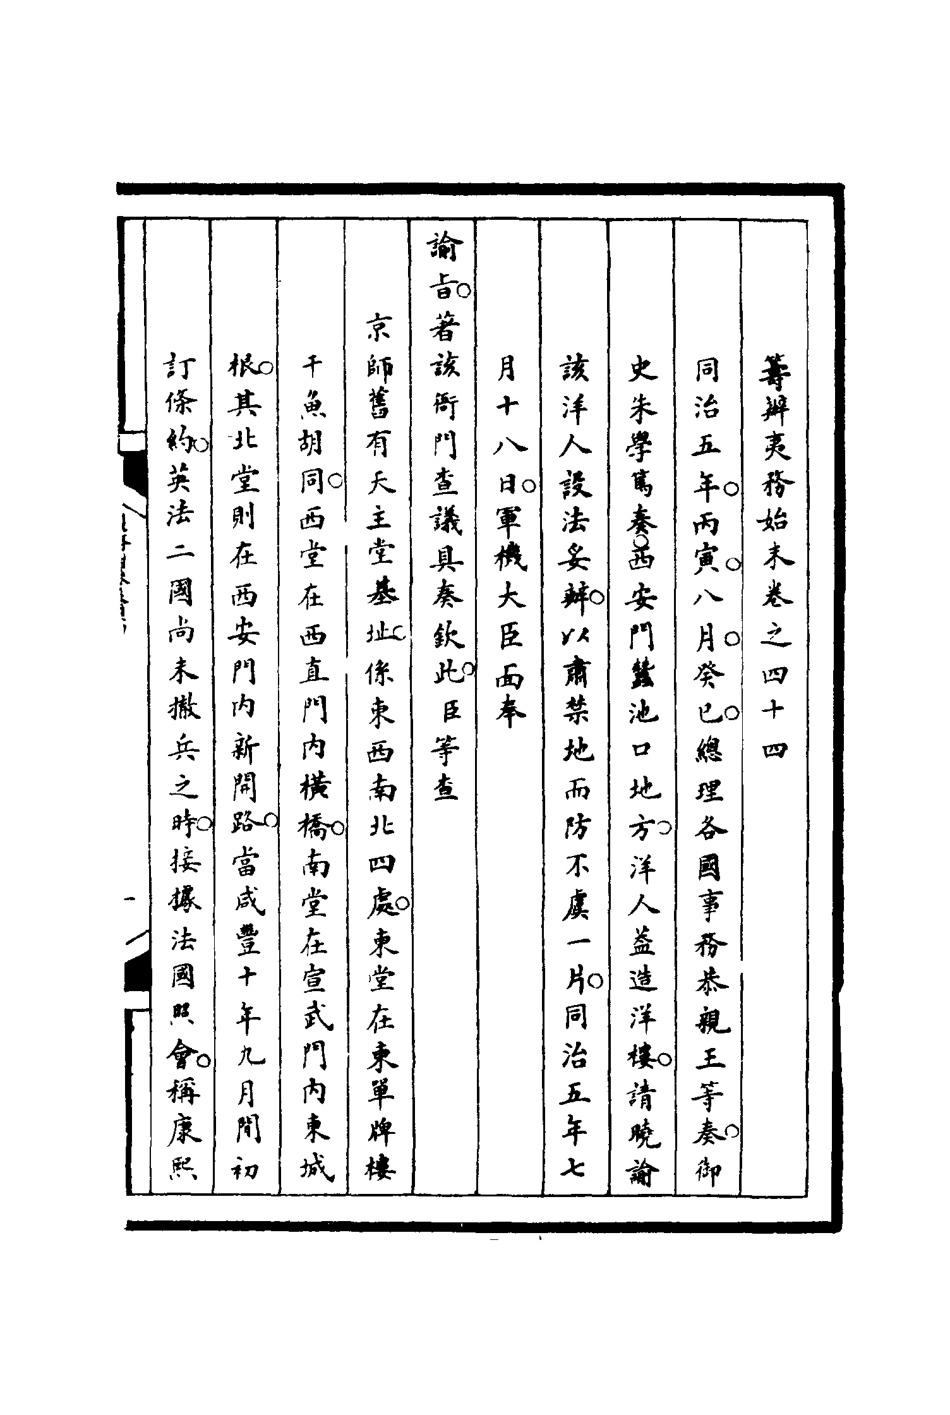 籌辦夷務始末卷之四十四
同治五年。丙寅。八月。癸巳。總理各國事務恭親王等奏。御
史朱學篤奏。西安門蠶池口地方。洋人蓋造洋樓。請曉諭
該洋人設法妥辦。以肅禁地而防不虞一片。同治五年七
月十八日。軍機大臣面奉
諭旨。著該衙門查議具奏欽此。臣等查
京師舊有天主堂基址。係東西南北四處。東堂在東單牌樓
干魚胡同。西堂在西直門內橫橋。南堂在宣武門內東城
根。其北堂則在西安門內新開路。當咸豐十年九月間初
訂條約。英法二國尚未撤兵之時。接據法國照會。稱康熙
一